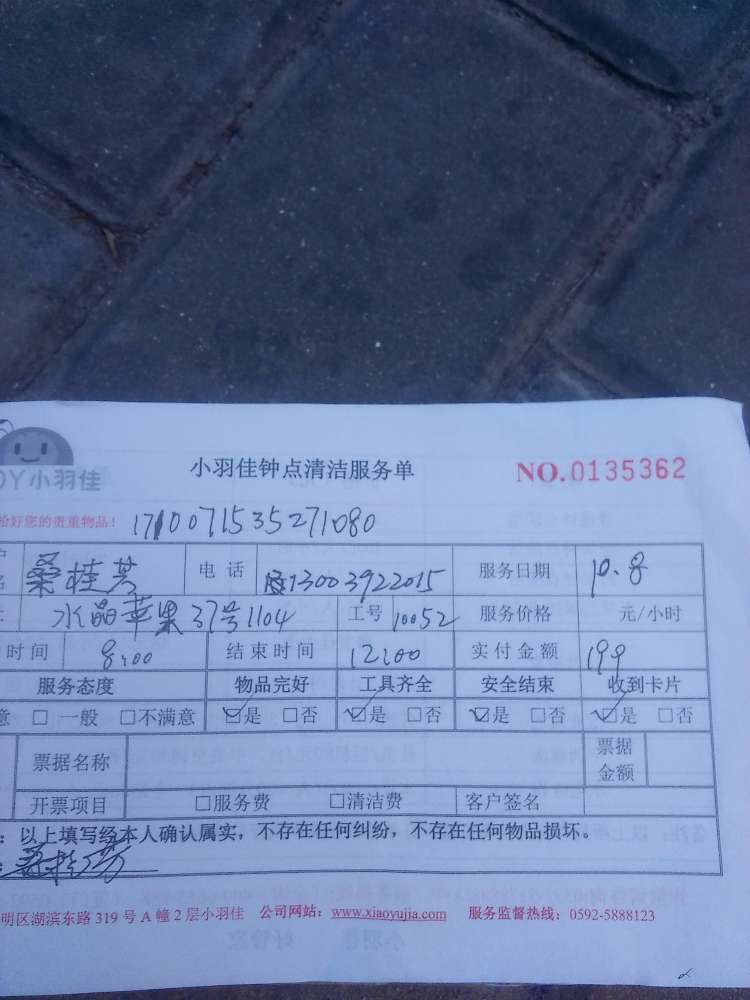 小羽佳钟点清洁服务单 NO.0135362
OY小羽佳
给好您的贵重物品! 1710071535271080
户名 桑桂芳 电话 13003922015 服务日期 10.8
水晶苹果37号1104 工号 10052 服务价格 元/小时
时间 8:00 结束时间 12:00 实付金额 199
服务态度 物品完好 工具齐全 安全结束 收到卡片
意 □一般 □不满意 ☑是 □否 ☑是 □否 ☑是 □否 ☑是 □否
票据名称 票据金额
开票项目 □服务费 □清洁费 客户签名
:以上填写经本人确认属实,不存在任何纠纷,不存在任何物品损坏。
: 桑桂芳
明区湖滨东路319号A幢2层小羽佳 公司网站:www.xiaoyujia.com 服务监督热线:0592-5888123